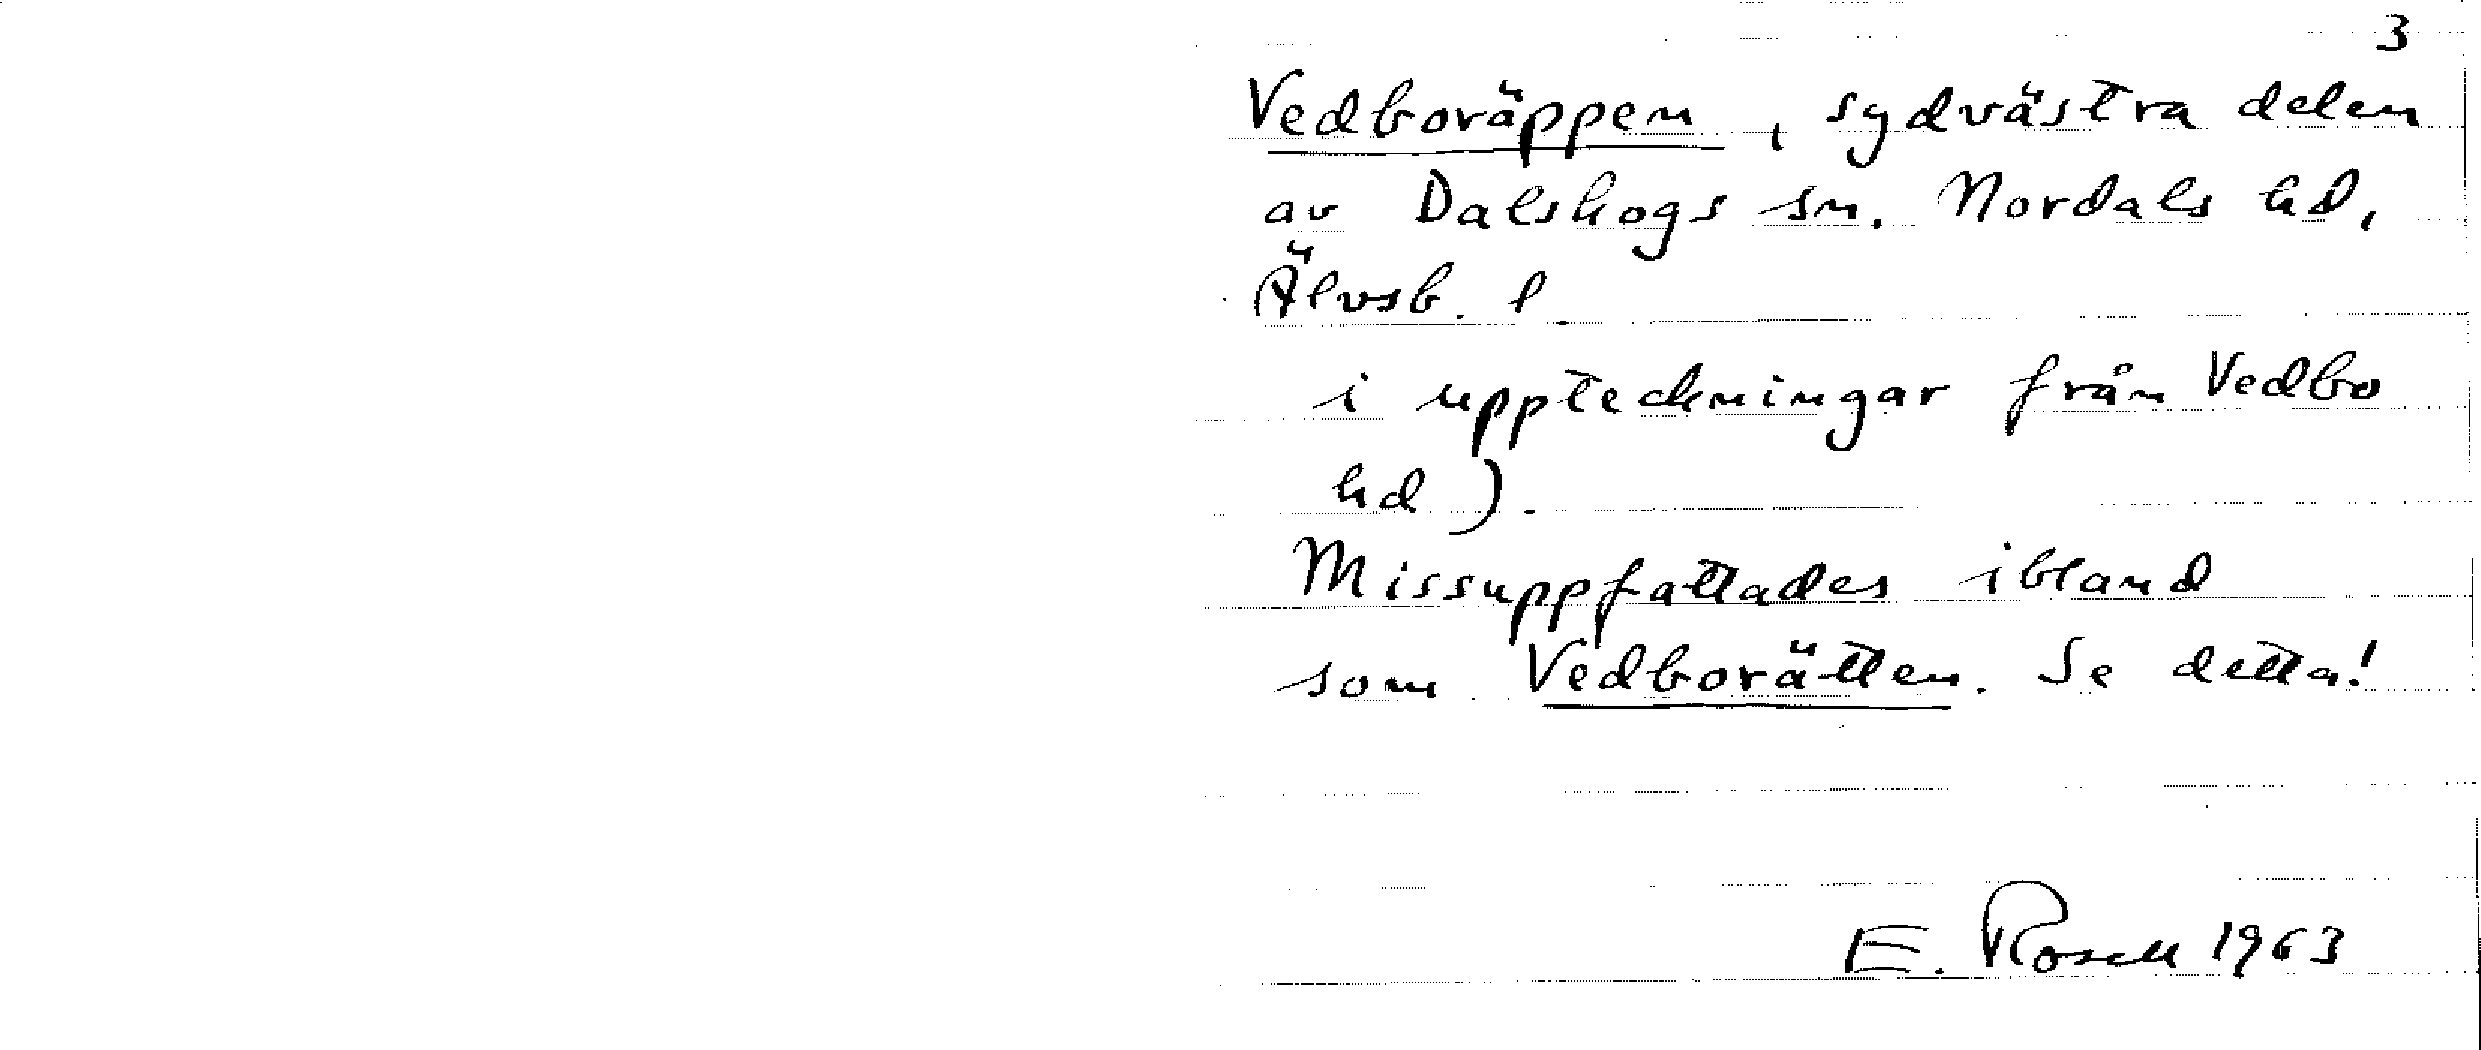 3
Vedboräppen, sydvästra delen
av Dalskogs sn. Nordals hd,
Älvsb. l
i uppteckningar från Vedbo
hd).
Missuppfattades ibland
som Vedborätten. Se detta!
E. Rosell 1963